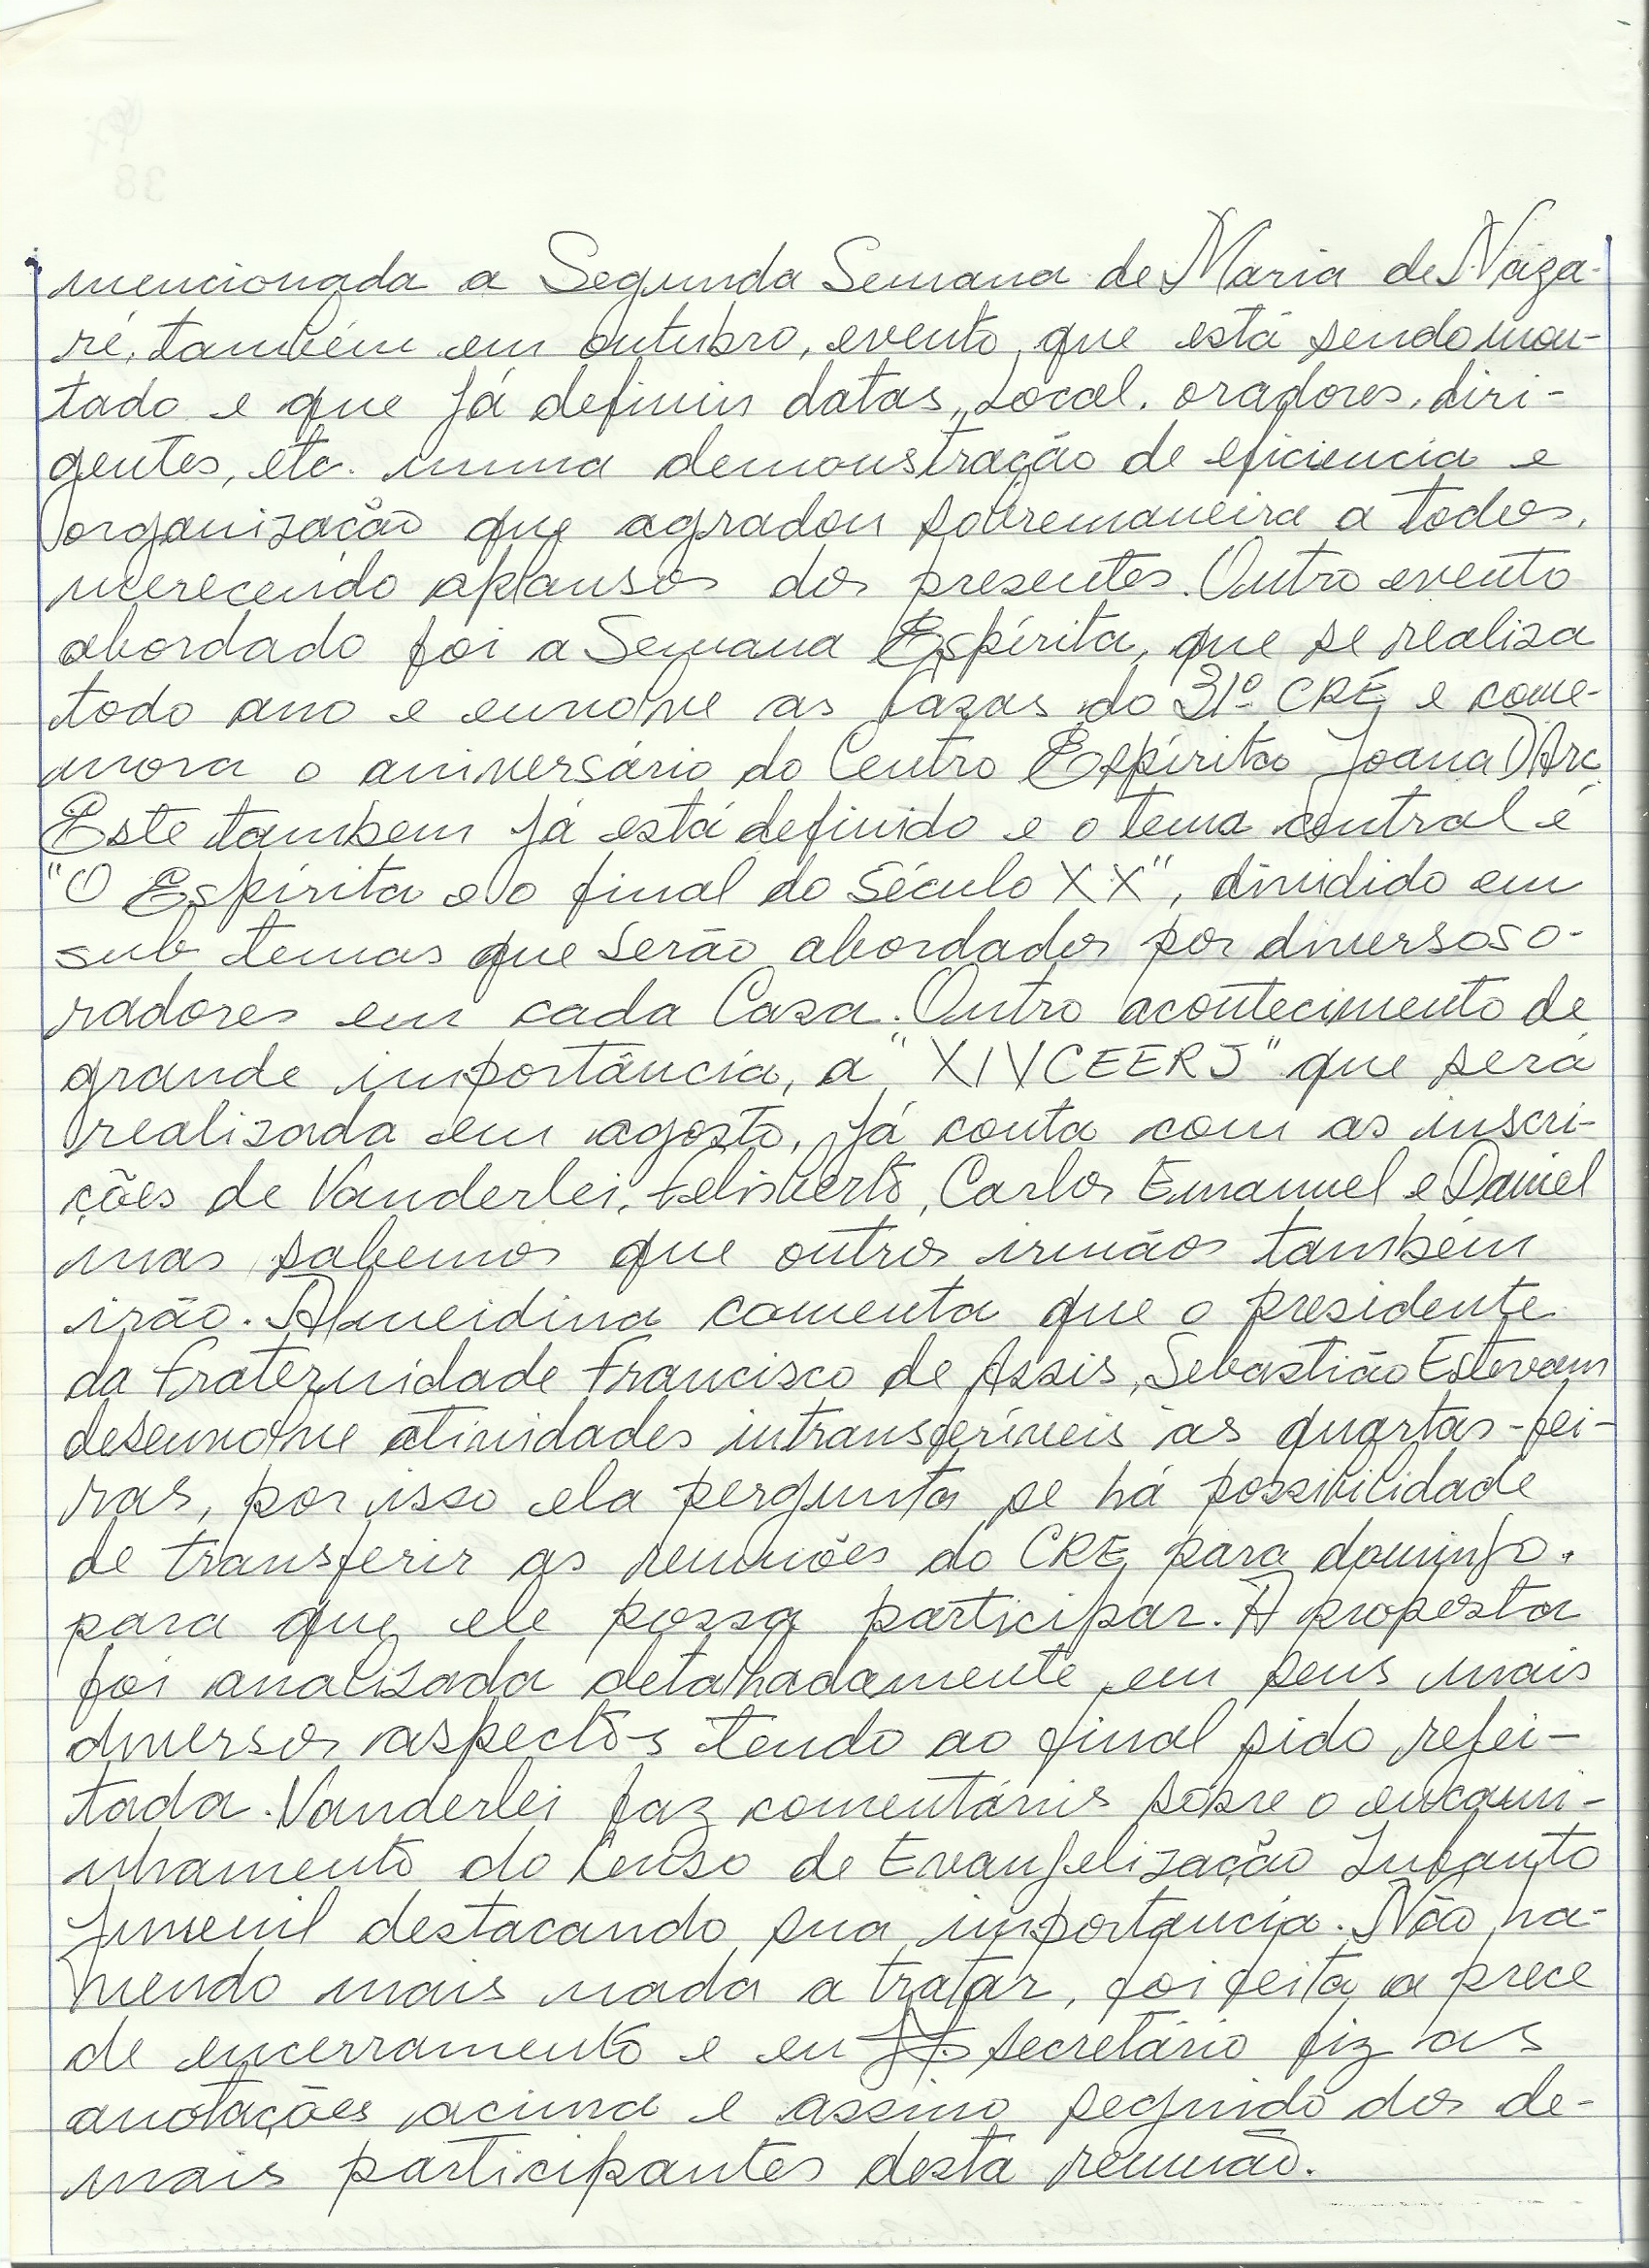 mencionada a Segunda Semana de Maria de Naza-
ré, também em outubro, evento que está sendo mon-
tado e que já definiu datas, local, oradores, diri-
gentes, etc. numa demonstração de eficiencia e
organização que agradou sobremaneira a todos,
merecendo aplausos dos presentes. Outro evento
abordado foi a Semana Espírita, que se realiza
todo ano e envolve as Casas do 31º CRE e come-
mora o aniversário do Centro Espírita Joana D'Arc
Este tambem já está definido e o tema central é
"O Espírita e o final do Século XX", dividido em
sub temas que serão abordados por diversos o-
radores em cada Casa. Outro acontecimento de
grande importância, a "XIVCEERJ" que será
realizada em agosto, já conta com as inscri-
ções de Vanderlei, Felisberto, Carlos Emanuel e Daniel
mas sabemos que outros irmãos também
irão. Almeidina comenta que o presidente
da Fraternidade Francisco de Assis, Sebastião Estevam
desenvolve atividades intransferíveis às quartas-fei-
ras, por isso ela pergunta se há possibilidade
de transferir as reuniões do CRE para domingo.
para que ele possa participar. A proposta
foi analisada detalhadamente em seus mais
diversos aspectos tendo ao final sido rejei-
tada. Vanderlei faz comentários sobre o encami-
nhamento do Censo de Evangelização Infanto
Juvenil destacando sua importancia. Não ha-
vendo mais nada a tratar, foi feita a prece
de encerramento e eu secretário fiz as
anotações acima e assino seguido dos de-
mais participantes desta reunião.